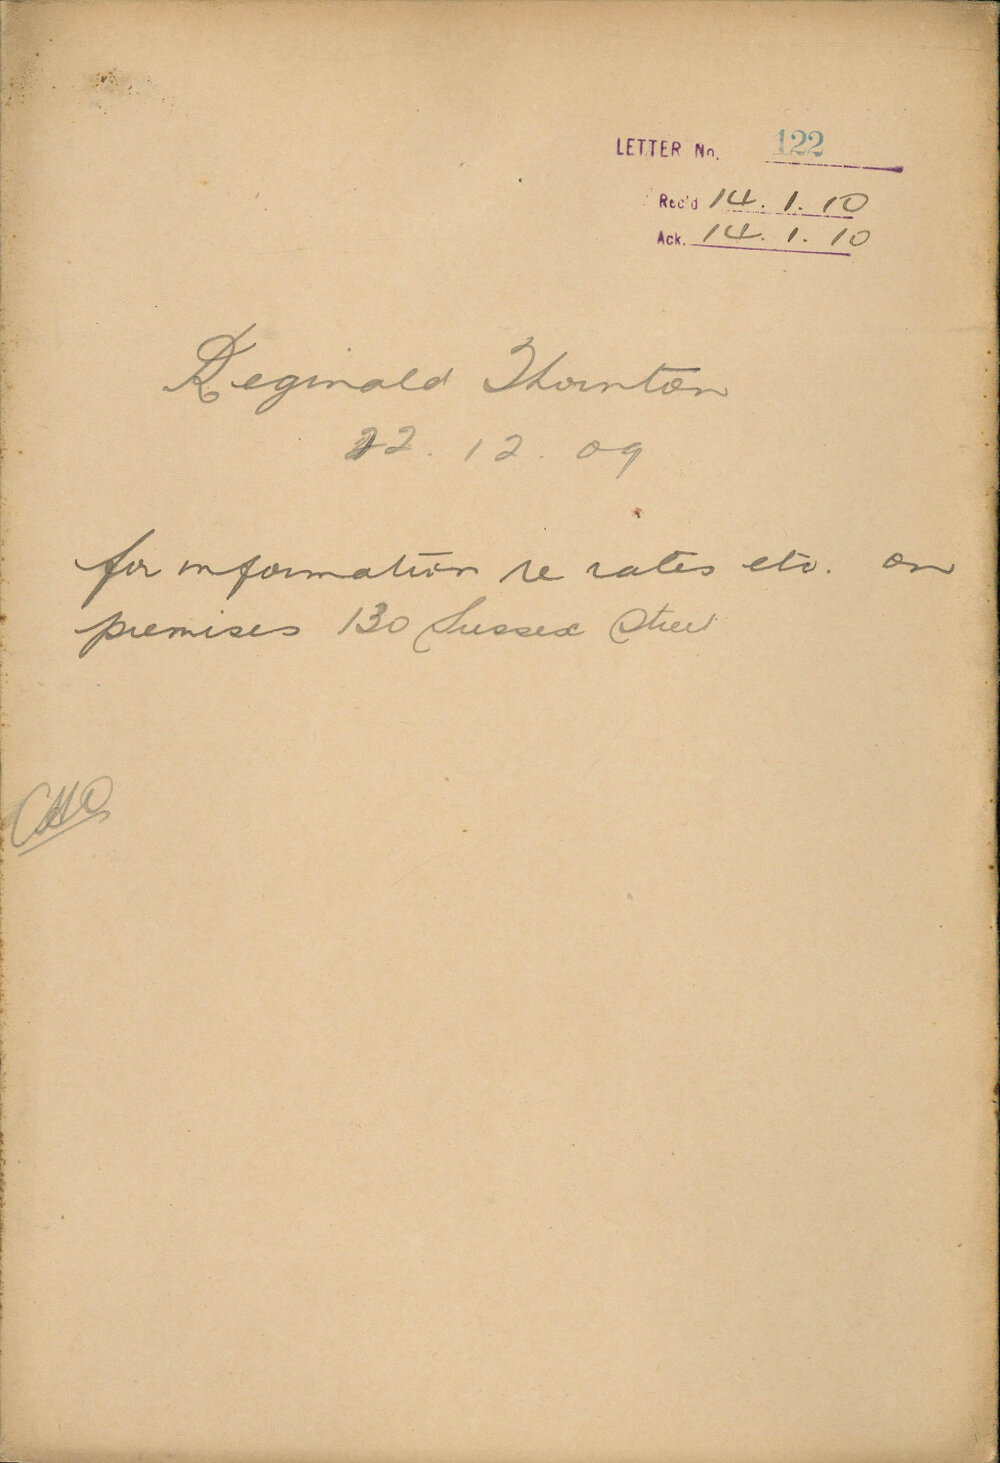 LETTER No. 122
Rec'd 14. 1. 10
Ack. 14. 1. 10
Reginald Thornton
22. 12. 09
for information re rates etc. on
premises 130 Sussex Street